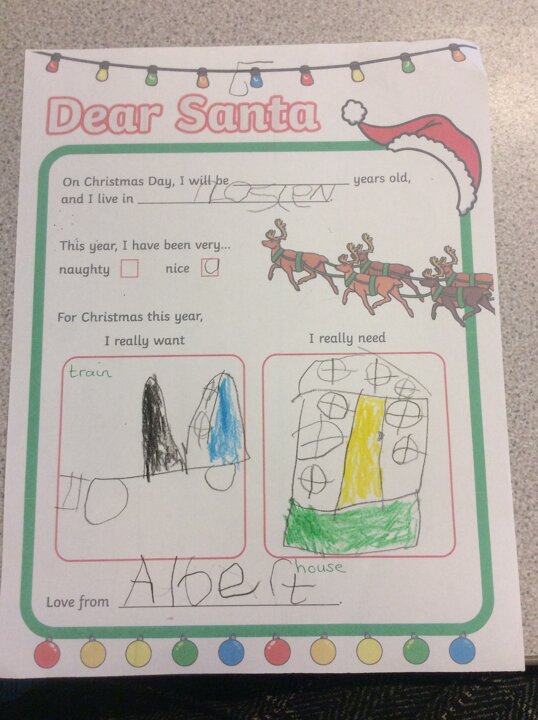 5
Dear Santa
On Christmas Day, I will be years old,
and I live in
This year, I have been very...
naughty nice
For Christmas this year,
I really want I really need
train
house
Love from Albert.